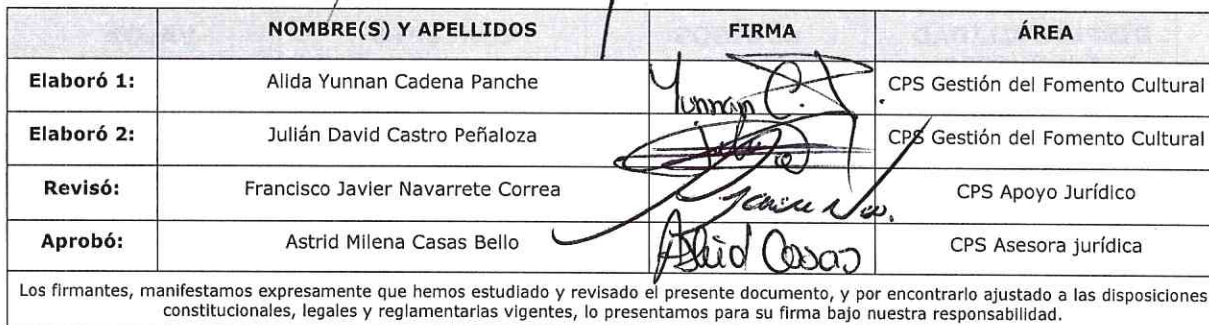 NOMBRE(S) Y APELLIDOS FIRMA ÁREA
Elaboró 1: Alida Yunnan Cadena Panche Yunnan C. CPS Gestión del Fomento Cultural
Elaboró 2: Julián David Castro Peñaloza CPS Gestión del Fomento Cultural
Revisó: Francisco Javier Navarrete Correa CPS Apoyo Jurídico
Aprobó: Astrid Milena Casas Bello Astrid Casas CPS Asesora jurídica
Los firmantes, manifestamos expresamente que hemos estudiado y revisado el presente documento, y por encontrarlo ajustado a las disposiciones
constitucionales, legales y reglamentarias vigentes, lo presentamos para su firma bajo nuestra responsabilidad.